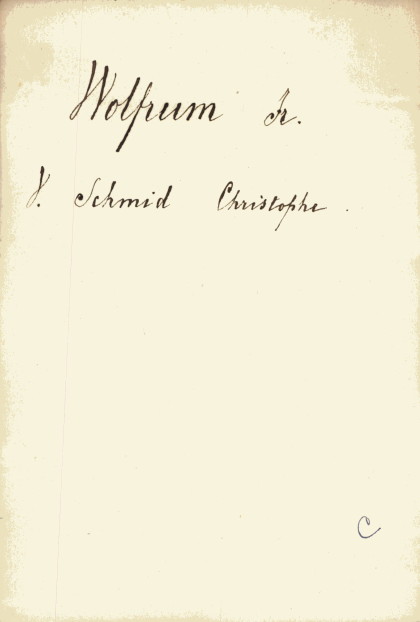 Wolfrum Fr.
V. Schmid Christophe.
C